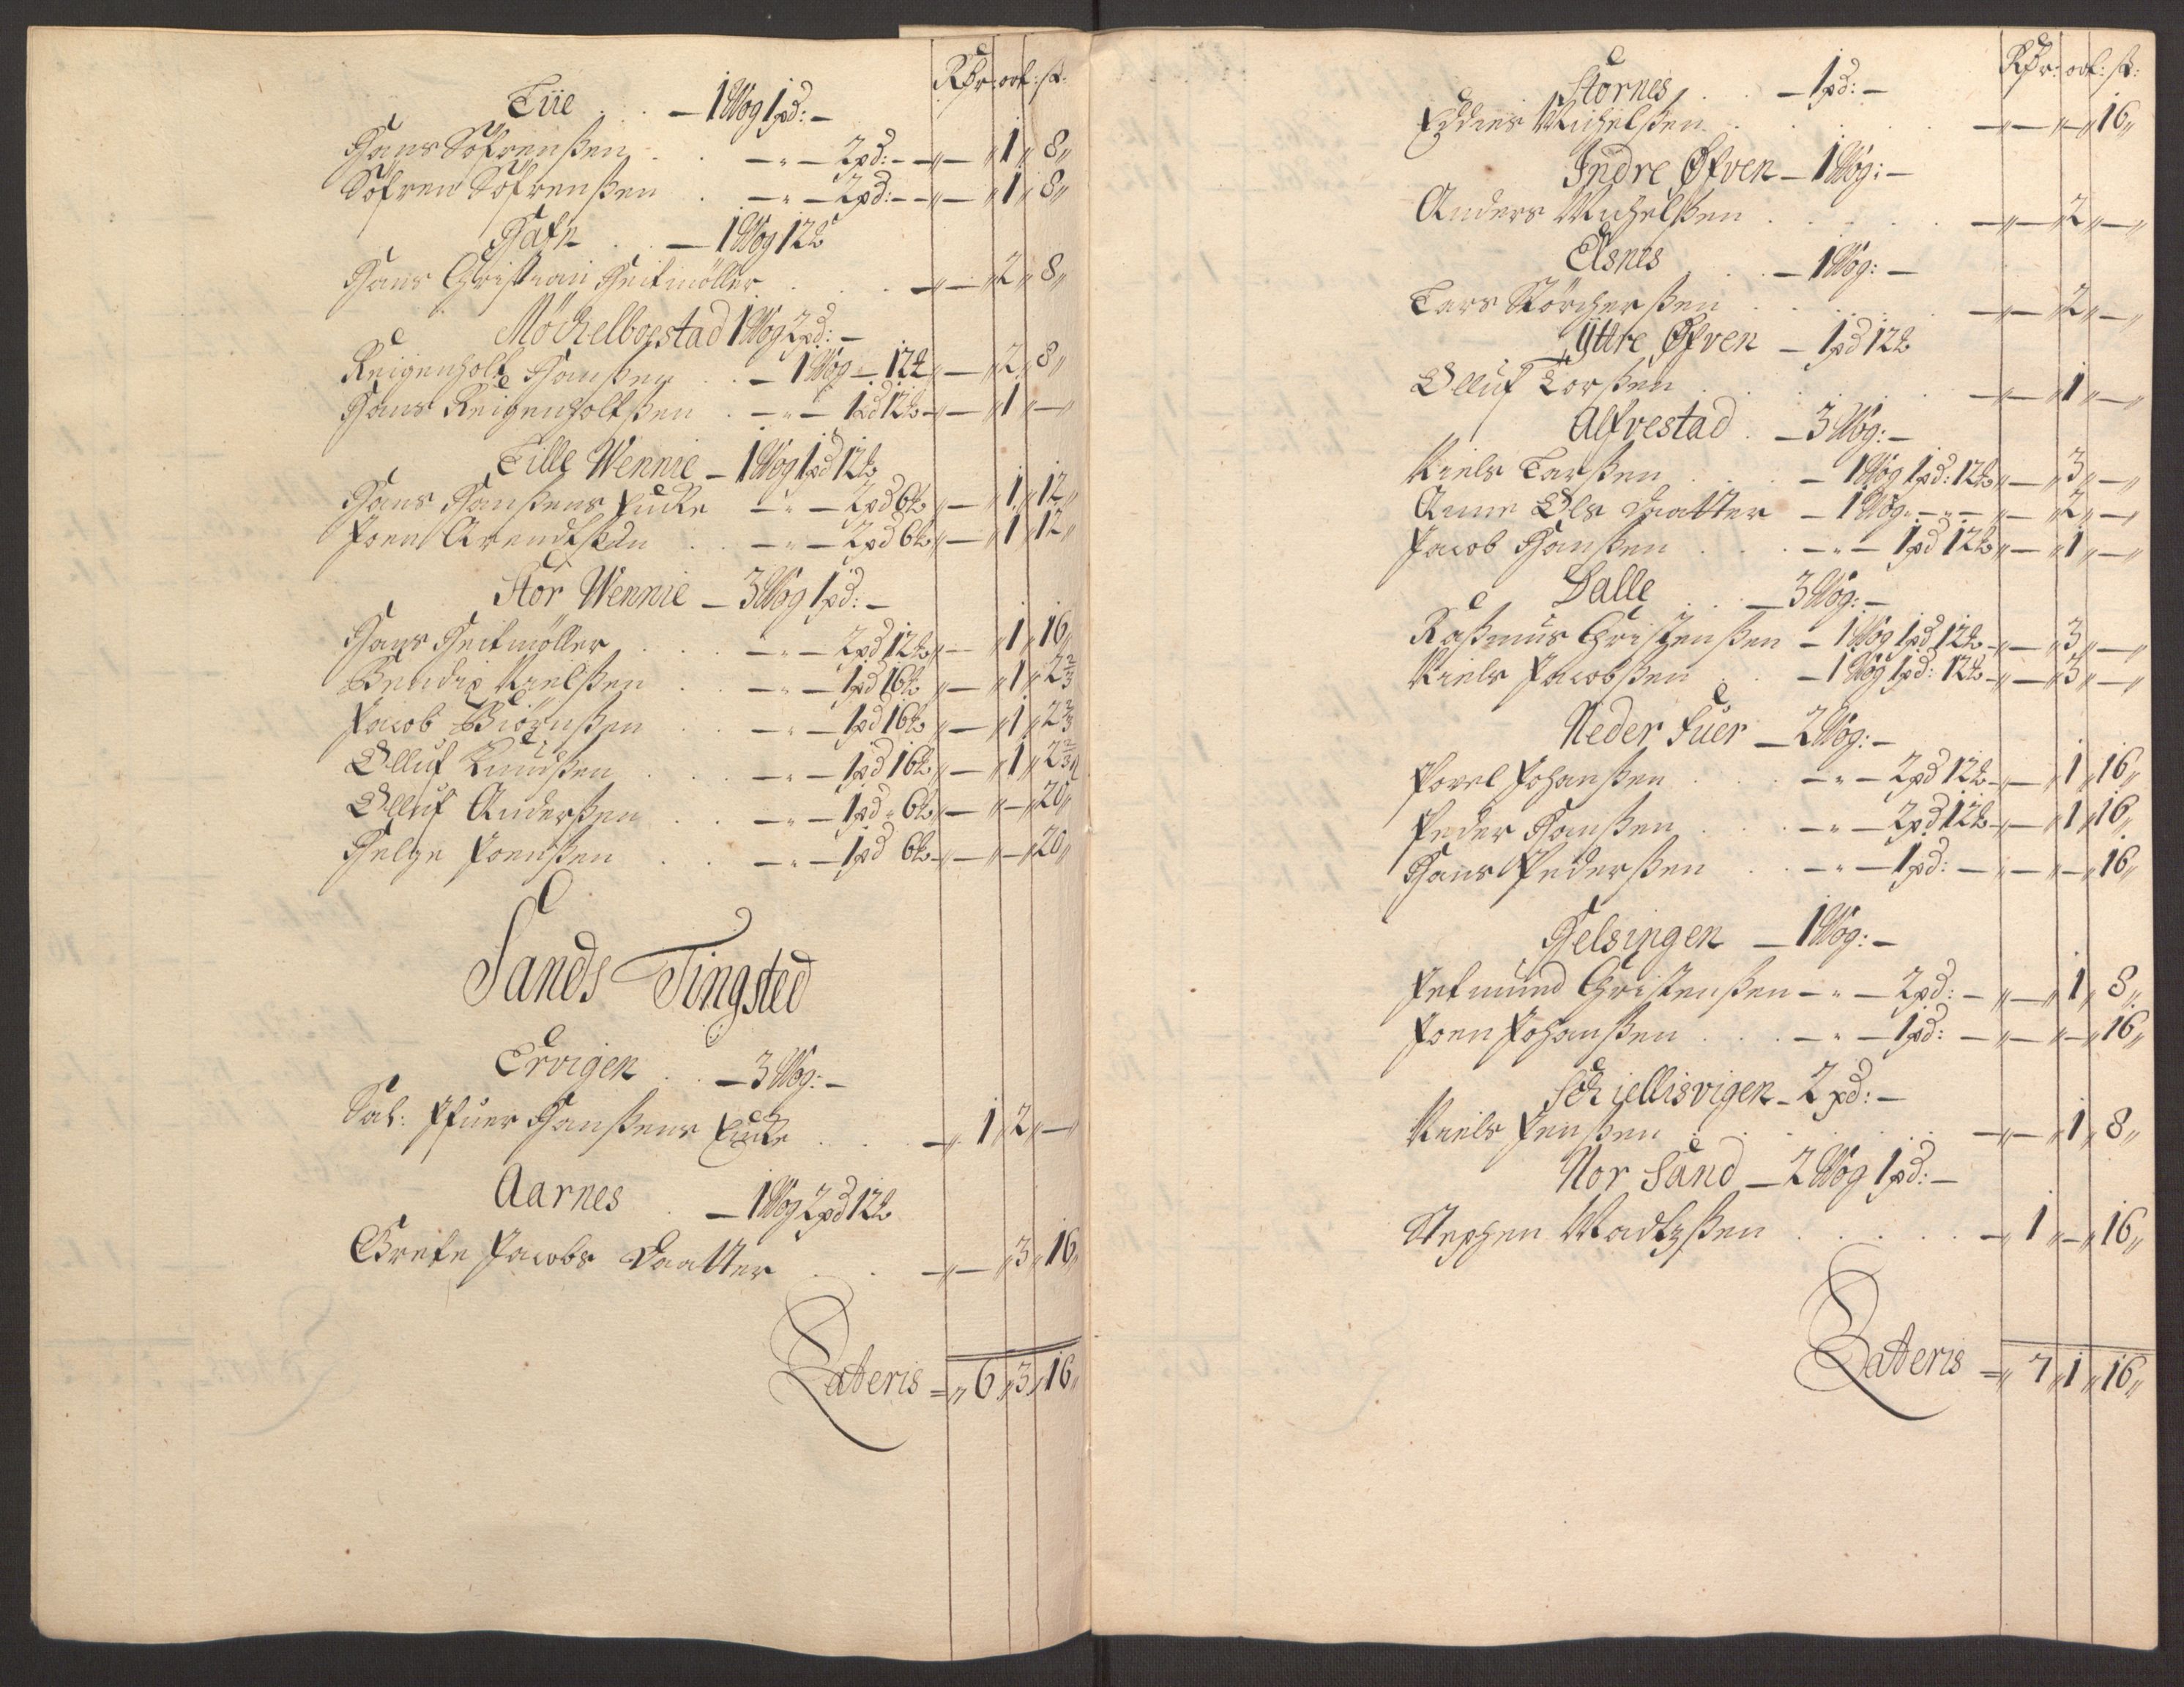 Rdr: ort: sk:
Tüe . . — 1 Wog 1 pd: —
Hans Söfrensßen . . — „ — 2 pd: — „ — „ 1 „ 8 „
Söfren Söfrensßen . — „ — 2 pd: — „ — „ 1 „ 8 „
Hafn . . — 1 Wog 12 ℔
Hans Christian Heitmöller . . . — „ — „ 2 „ 8 „
Möckelboestad 1 Wog 2 pd: —
Reigenholt Hanßen . . — 1 Wog „ — 12 ℔ „ — „ 2 „ 8 „
Hans Reigenholtsßen . — „ — 1 pd 12 ℔ „ — „ 1 „ — „
Lille Wennie — 1 Wog 1 pd 12 ℔
Hans Hanßens Encke — „ — 2 pd 6 ℔ „ — „ 1 „ 12 „
Joen Arendtsßen . . — „ — 2 pd 6 ℔ „ — „ 1 „ 12 „
Stor Wennie — 3 Wog 1 pd: —
Hans Heitmöller . . . — „ — 2 pd 12 ℔ „ — „ 1 „ 16 „
Bendix Nielßen . . — „ — 1 pd 16 ℔ „ — „ 1 „ 2 2/3
Jacob Biörnßen . . — „ — 1 pd 16 ℔ „ — „ 1 „ 2 2/3
Olluf Knudßen . . . — „ — 1 pd 16 ℔ „ — „ 1 „ 2 2/3 „
Olluf Anderßen . . — „ — 1 pd „ 6 ℔ „ — „ — „ 20 „
Helge Joenßen . . — „ — 1 pd 6 ℔ „ — „ — „ 20 „
Sands Tingsted
Ervigen . . — 3 Wog: —
Sal: Ifuer Hanßens Encke . . . — „ 1 „ 2 „ — „
Aarnes . — 1 Wog 2 pd 12 ℔
Grete Jacobs Daatter . . — „ — „ 3 „ 16 „
Lateris = „ 6 „ 3 „ 16 „
Rdr: ort: sk:
Stornes . . — 1 pd: —
Michelßen . . . . — „ — „ — „ 16 „
Indre Øfven — 1 Wog: —
Anders Michelßen . . . . . — „ — „ 2 „ — „
Elsnes . . — 1 Wog: —
Lars Störcherßen . . . . — „ — „ 2 „ — „
Yttre Øfven — 1 pd 12 ℔
Olluf Torßen . . . . . — „ — „ 1 „ — „
Alfvestad . — 3 Wog: —
Niels Larßen . . . — 1 Wog 1 pd: 12 ℔ „ — „ 3 „ — „
Anne Ols Daatter — 1 Wog „ — „ — „ — „ 2 „ — „
Jacob Hanßen . . . — „ — 1 pd 12 ℔ „ — „ 1 „ — „
Dalle . . . — 3 Wog: —
Raßmus Christenßen — 1 Wog 1 pd 12 ℔ „ — „ 3 „ — „
Niels Jacobsßen . . — 1 Wog 1 pd: 12 ℔ „ — „ 3 „ — „
Neder Fuer — 2 Wog: —
Povel Johanßen . . . — „ — 2 pd 12 ℔ „ — „ 1 „ 16 „
Peder Hanßen . . . — „ — 2 pd 12 ℔ „ — „ 1 „ 16 „
Hans Pederßen . . — „ — 1 pd: — „ — „ — „ 16 „
Helsingen — 1 Wog: —
Christenßen — „ — 2 pd: — „ — „ 1 „ 8 „
Joen Johanßen . . . — „ — 1 pd: — „ — „ — „ 16 „
Schiellisvigen — 2 pd: —
Niels Jenßen . . . . . . — „ — „ 1 „ 8 „
Nor Sand — 2 Wog 1 pd: —
Stephen Madtzßen . . . . . — „ 1 „ — „ 16 „
Lateris = „ 7 „ 1 „ 16 „